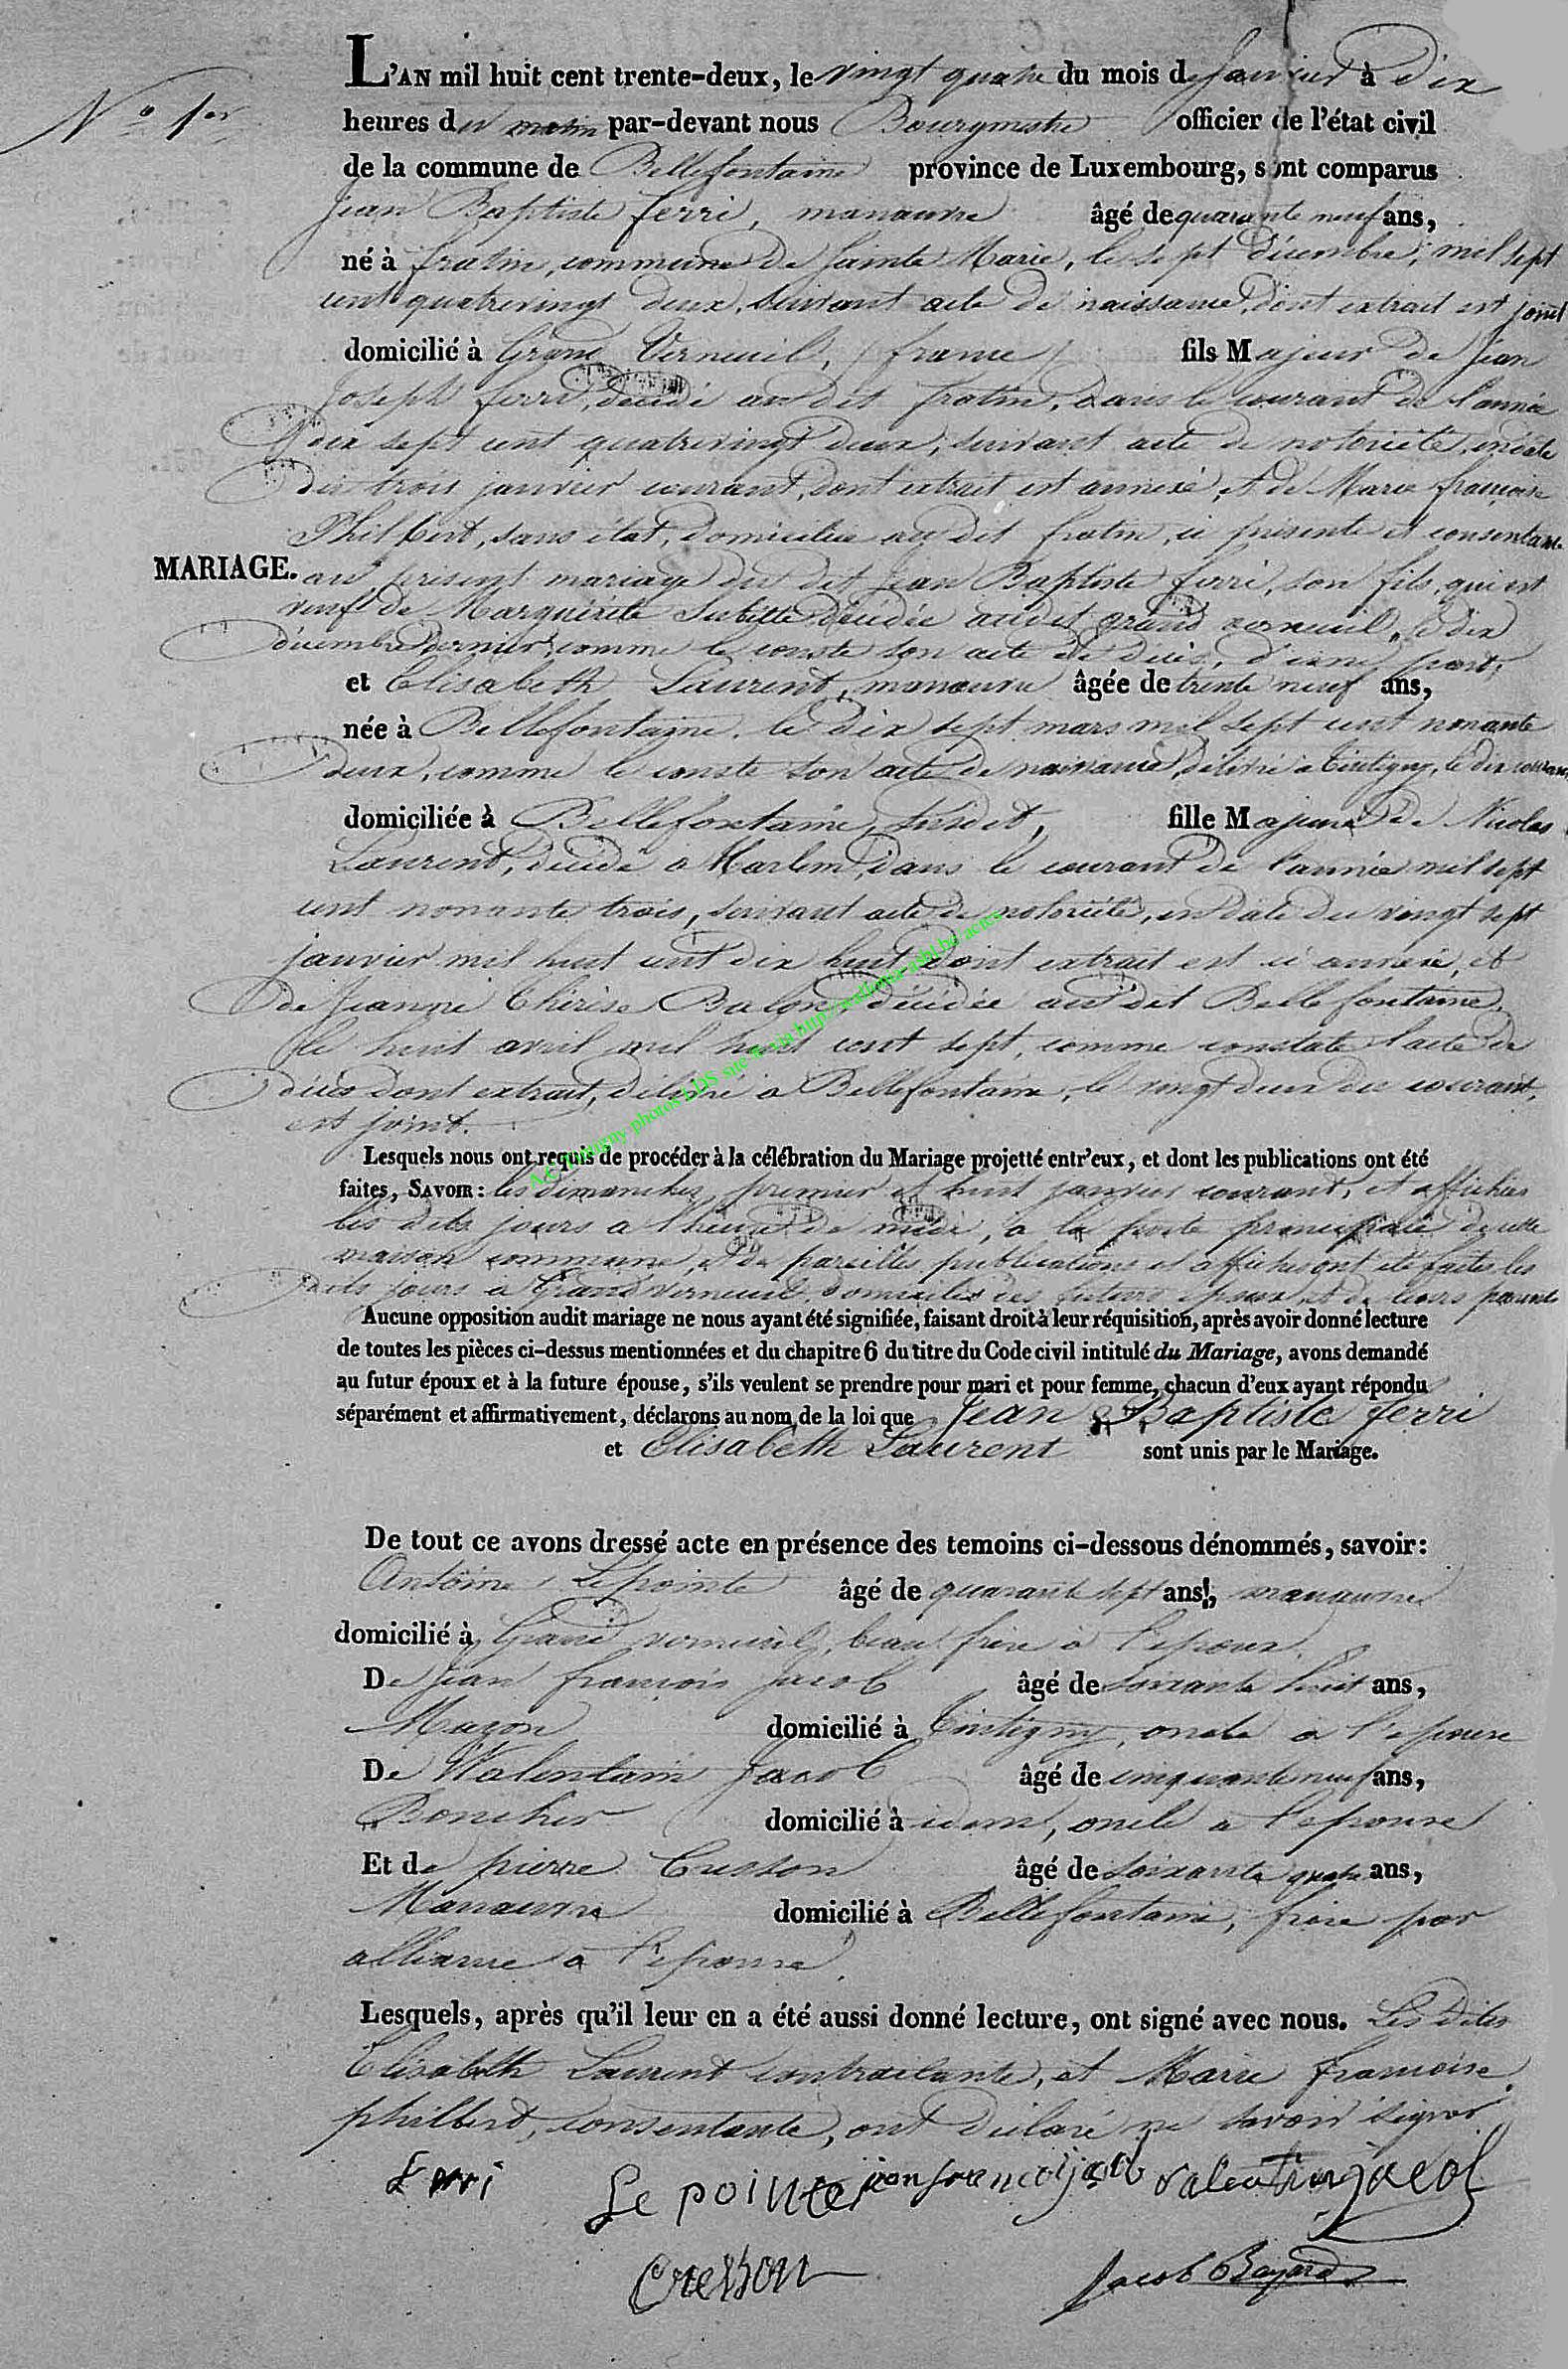 L'AN mil huit cent trente-deux, le vingt quatre du mois de Janvier à Dix
N° 1er
heures du matin par-devant nous Bourgmestre officier de l'état civil
de la commune de Bellefontaine province de Luxembourg, sont comparus
Jean Baptiste ferri, manœuvre âgé de quarante neuf ans,
né à fratin, commune de Sainte Marie, le sept décembre, mil sept
cent quatrevingt deux, suivant acte de naissance, dont extrait est joint
domicilié à Grand Verneuil, (france) fils Majeur de Jean
Joseph ferri, décédé au dit fratin, dans le courant de l'année
dix sept cent quatrevingt deux, suivant acte de notoriété, en date
du trois janvier courant, dont extrait est annexé, et de Marie françoise
Philbert, sans état, domiciliée au dit fratin, ici présente et consentante
MARIAGE.
au présent mariage du dit Jean Baptiste ferri, son fils, qui est
veuf de Marguérite décédée audit grand verneuil, le dix
décembre dernier comme le conste son acte de décès, d'une part,
et Elisabeth Laurent, manœuvre âgée de trente neuf ans,
née à Bellefontaine, le dix sept mars mil sept cent nonante
deux, comme le conste son acte de naissance, délivré à Tintigny, le dix courant
domiciliée à Bellefontaine, susdit, fille Majeure de Nicolas
Laurent, décédé à Harlem, dans le courant de l'année mil sept
cent nonante trois, suivant acte de notoriété, en date du vingt sept
janvier mil huit cent dix huit dont extrait est ci annexé, et
de Jeanne Thérèse Balon, décédée au dit Bellefontaine,
le huit avril mil huit cent sept, comme constate l'acte de
décès dont extrait, délivré à Bellefontaine, le vingt deux du courant,
est joint.
Lesquels nous ont requis de procéder à la célébration du Mariage projetté entr'eux, et dont les publications ont été
faites, SAVOIR : les dimanches, premier et huit janvier courant, et affichées
les dits jours à l'heure de midi, à la porte principale de cette
maison commune, et de pareilles publications et affiches ont été faites les
dits jours à Grand verneuil, domiciles des futurs époux, et de leurs parents
Aucune opposition audit mariage ne nous ayant été signifiée, faisant droit à leur réquisition, après avoir donné lecture
de toutes les pièces ci-dessus mentionnées et du chapitre 6 du titre du Code civil intitulé du Mariage, avons demandé
au futur époux et à la future épouse, s'ils veulent se prendre pour mari et pour femme, chacun d'eux ayant répondu
séparément et affirmativement, déclarons au nom de la loi que Jean Baptiste ferri
et Elisabeth Laurent sont unis par le Mariage.
De tout ce avons dressé acte en présence des temoins ci-dessous dénommés, savoir:
Antoine Lepointe âgé de quarante sept ans, manœuvre
domicilié à Grand verneuil, beau frère à l'époux.
De Jean françois Jacob âgé de soixante huit ans,
Maçon domicilié à Tintigny, oncle à l'épouse
De Walentain Jacob âgé de cinquante neuf ans,
domicilié à idem, oncle à l'épouse
Et de pierre Cresson âgé de soixante quatre ans,
Manœuvre domicilié à Bellefontaine, frère par
alliance à l'épouse.
Lesquels, après qu'il leur en a été aussi donné lecture, ont signé avec nous. Les dites
Elisabeth Laurent contractante, et Marie françoise
philbert, consentante, ont déclaré ne savoir signer.
ferri Le pointe jean francoi jacob valentin jacob
Cresson Jacob Bayard